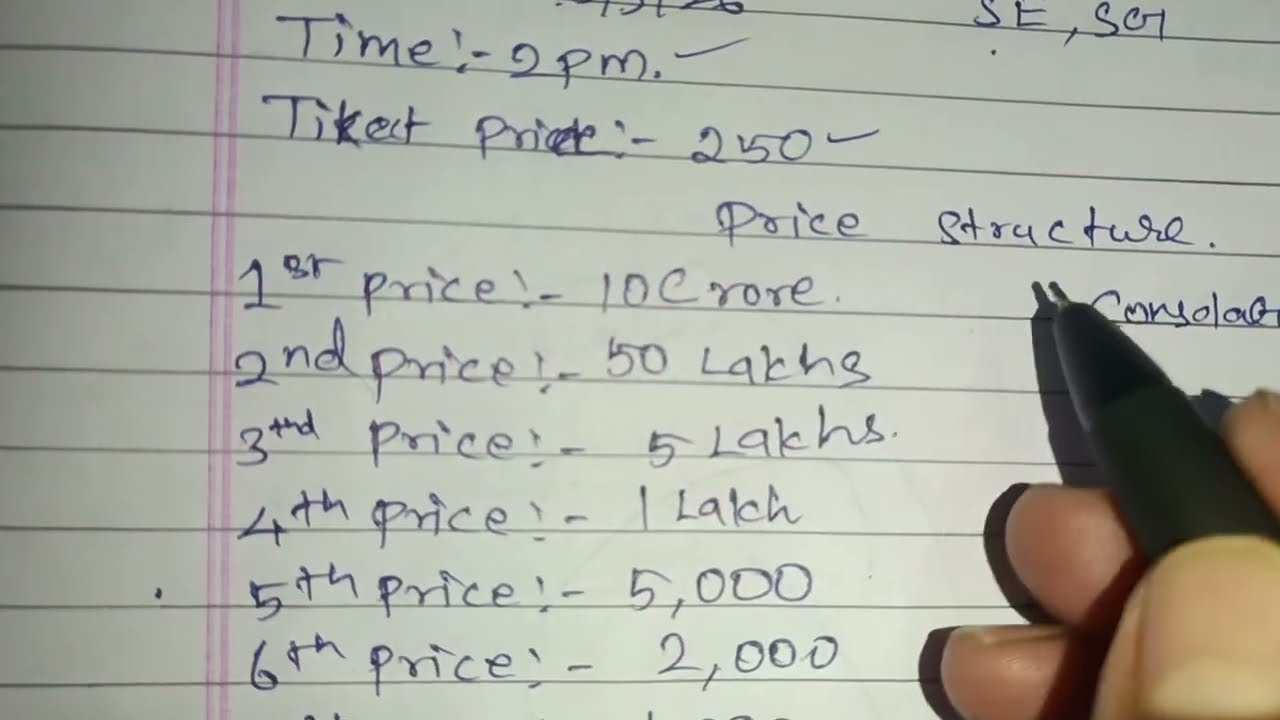 SE, SG
Time:- 2 pm.
Tiket Price:- 250
Price structure.
1st price:- 10 Crore.
2nd price:- 50 Lakhs
3thd price:- 5 Lakhs.
4th price:- 1 Lakh
5th price:- 5,000
6th price:- 2,000